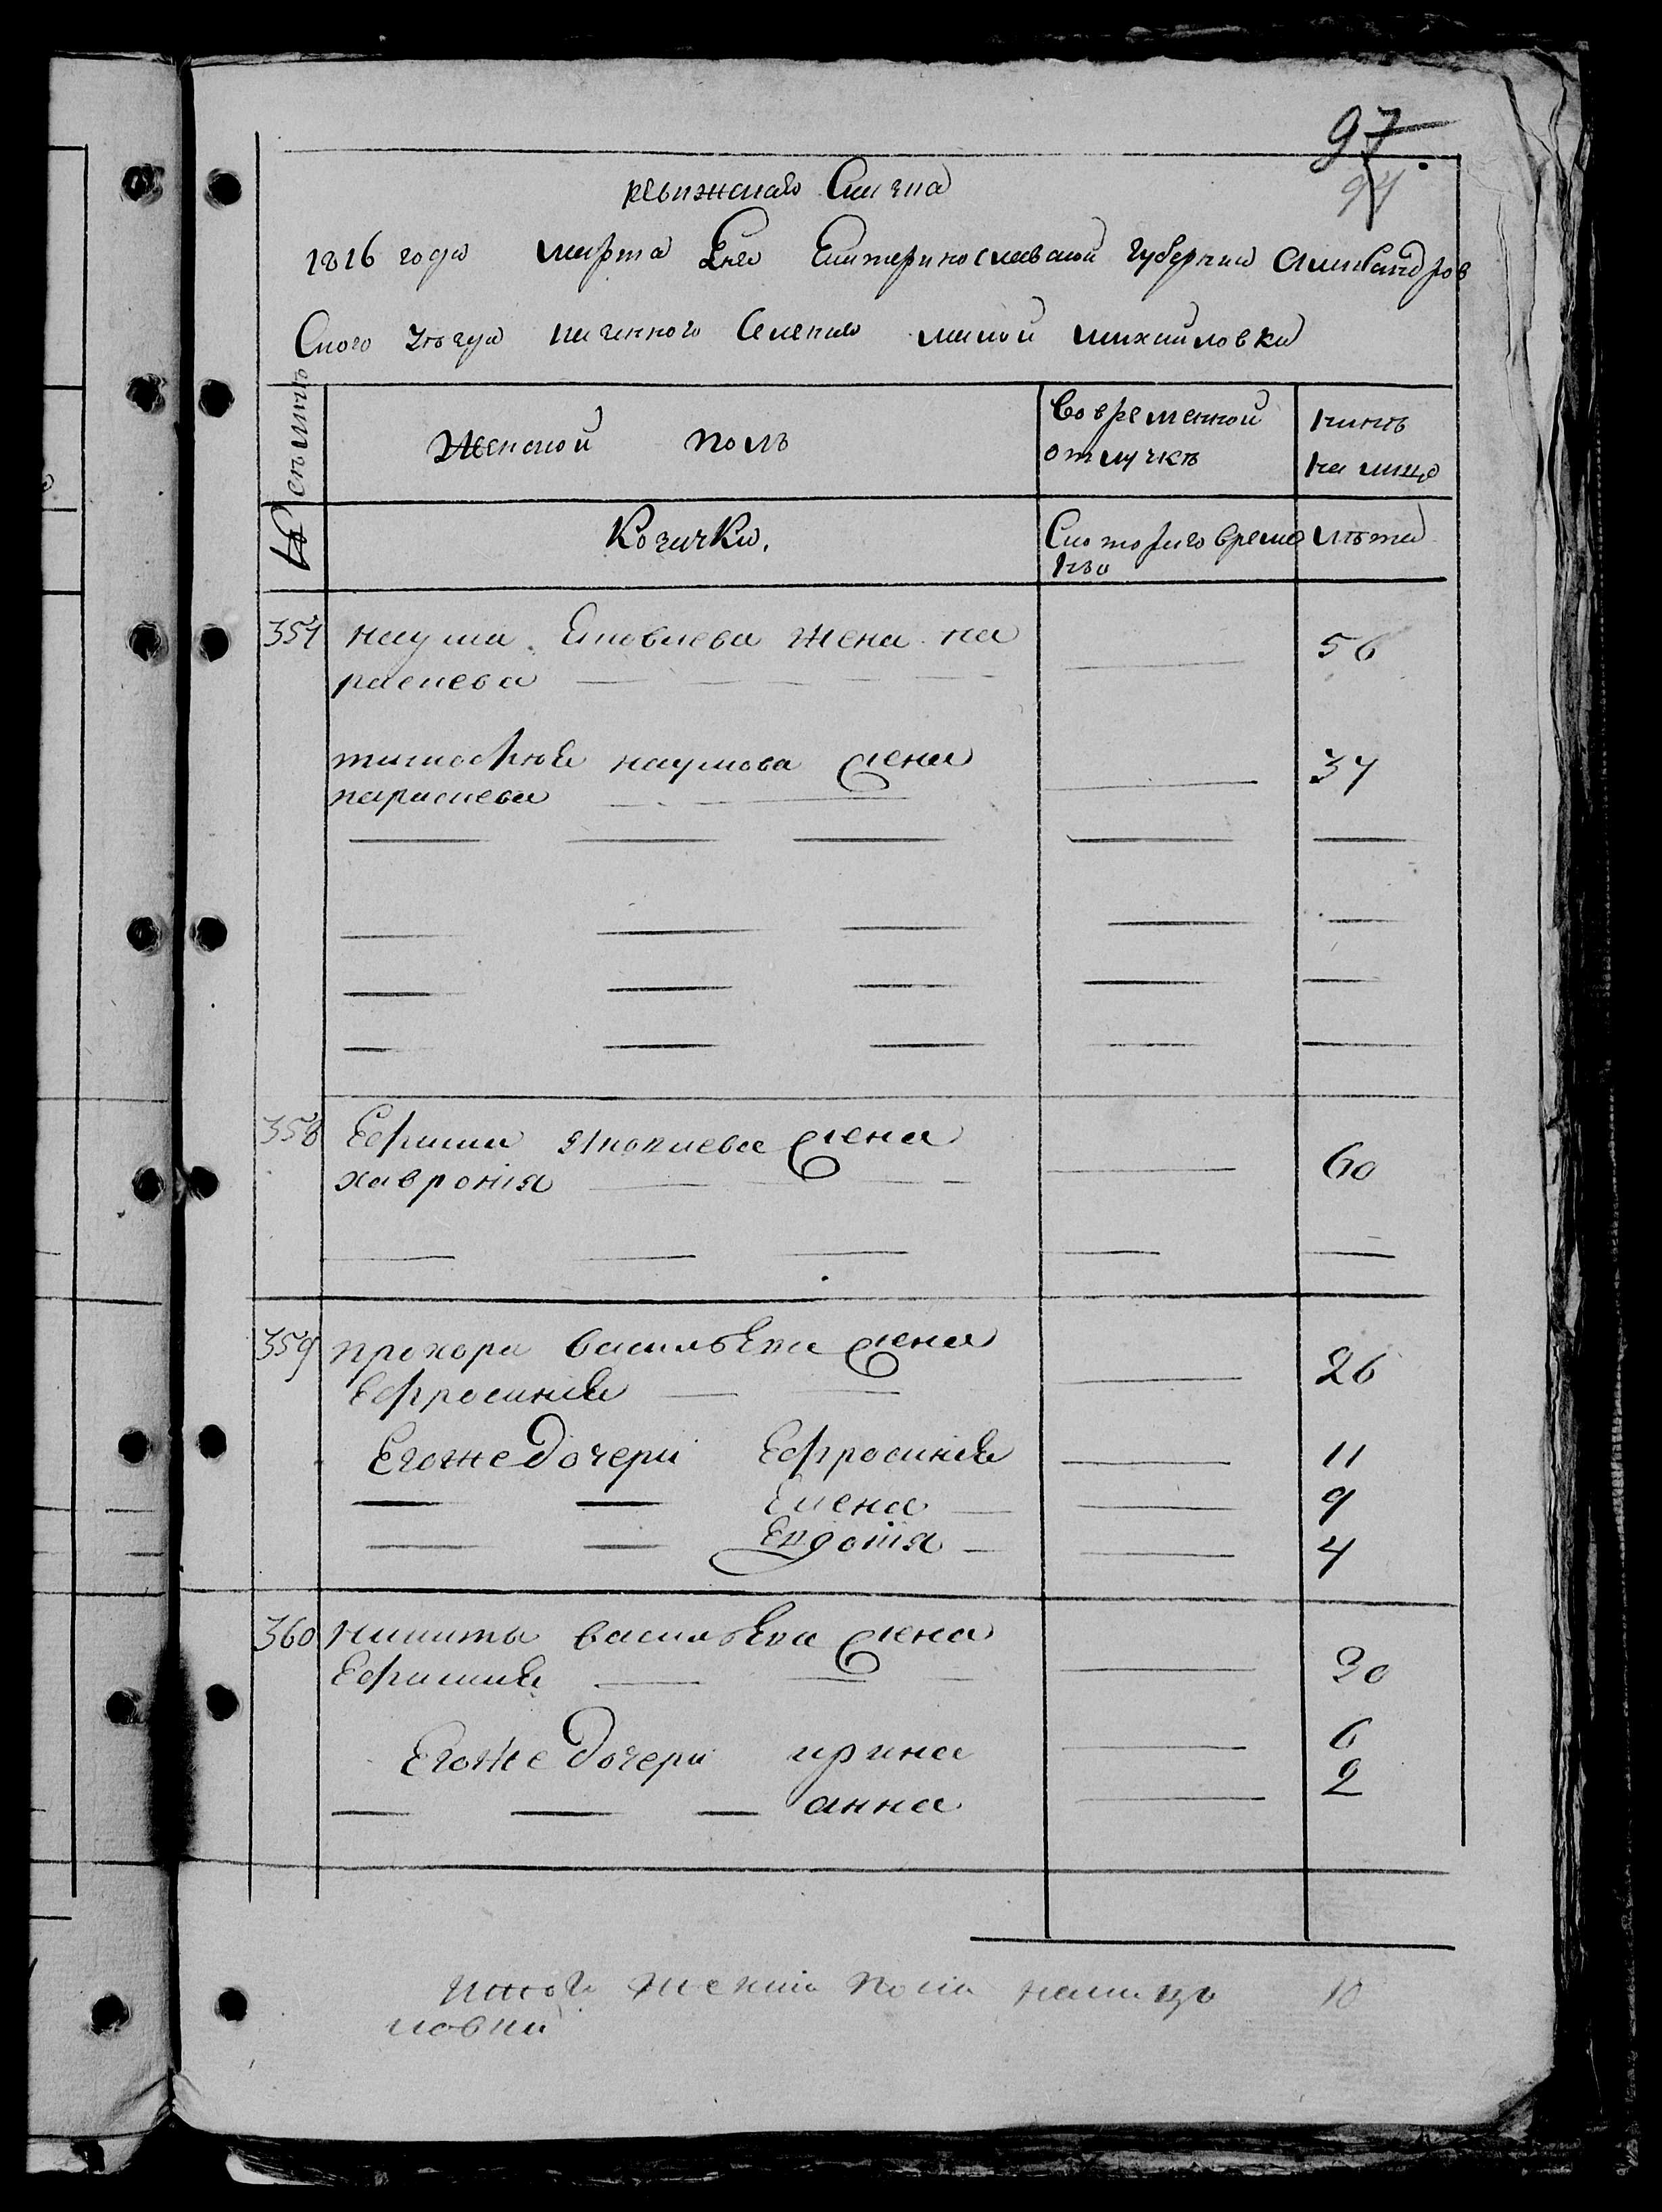 97.
94
ревижская Скаска
1816 года марта дня Екатеринославской губернии Александров
ского уезда казенного Селения малой михайловки
Семьи
Женской полъ
Во временной
отлучкѣ
ныне
на лицо
Козачки.
Скоторого време
ни
лѣта
357 наума Яковлева жена па
раскева 56
тимофея наумова жена
параскева 34
358 Ефима Яковлева жена
хаврония 60
359 прохора васильева жена
Ефросиния 26
Егоже дочери Ефросиния 11
Елена 9
Евдотия 4
360 никиты васильева жена
Ефимия 20
Егоже дочери ирина 6
анна 2
Итого женска пола налицо 10